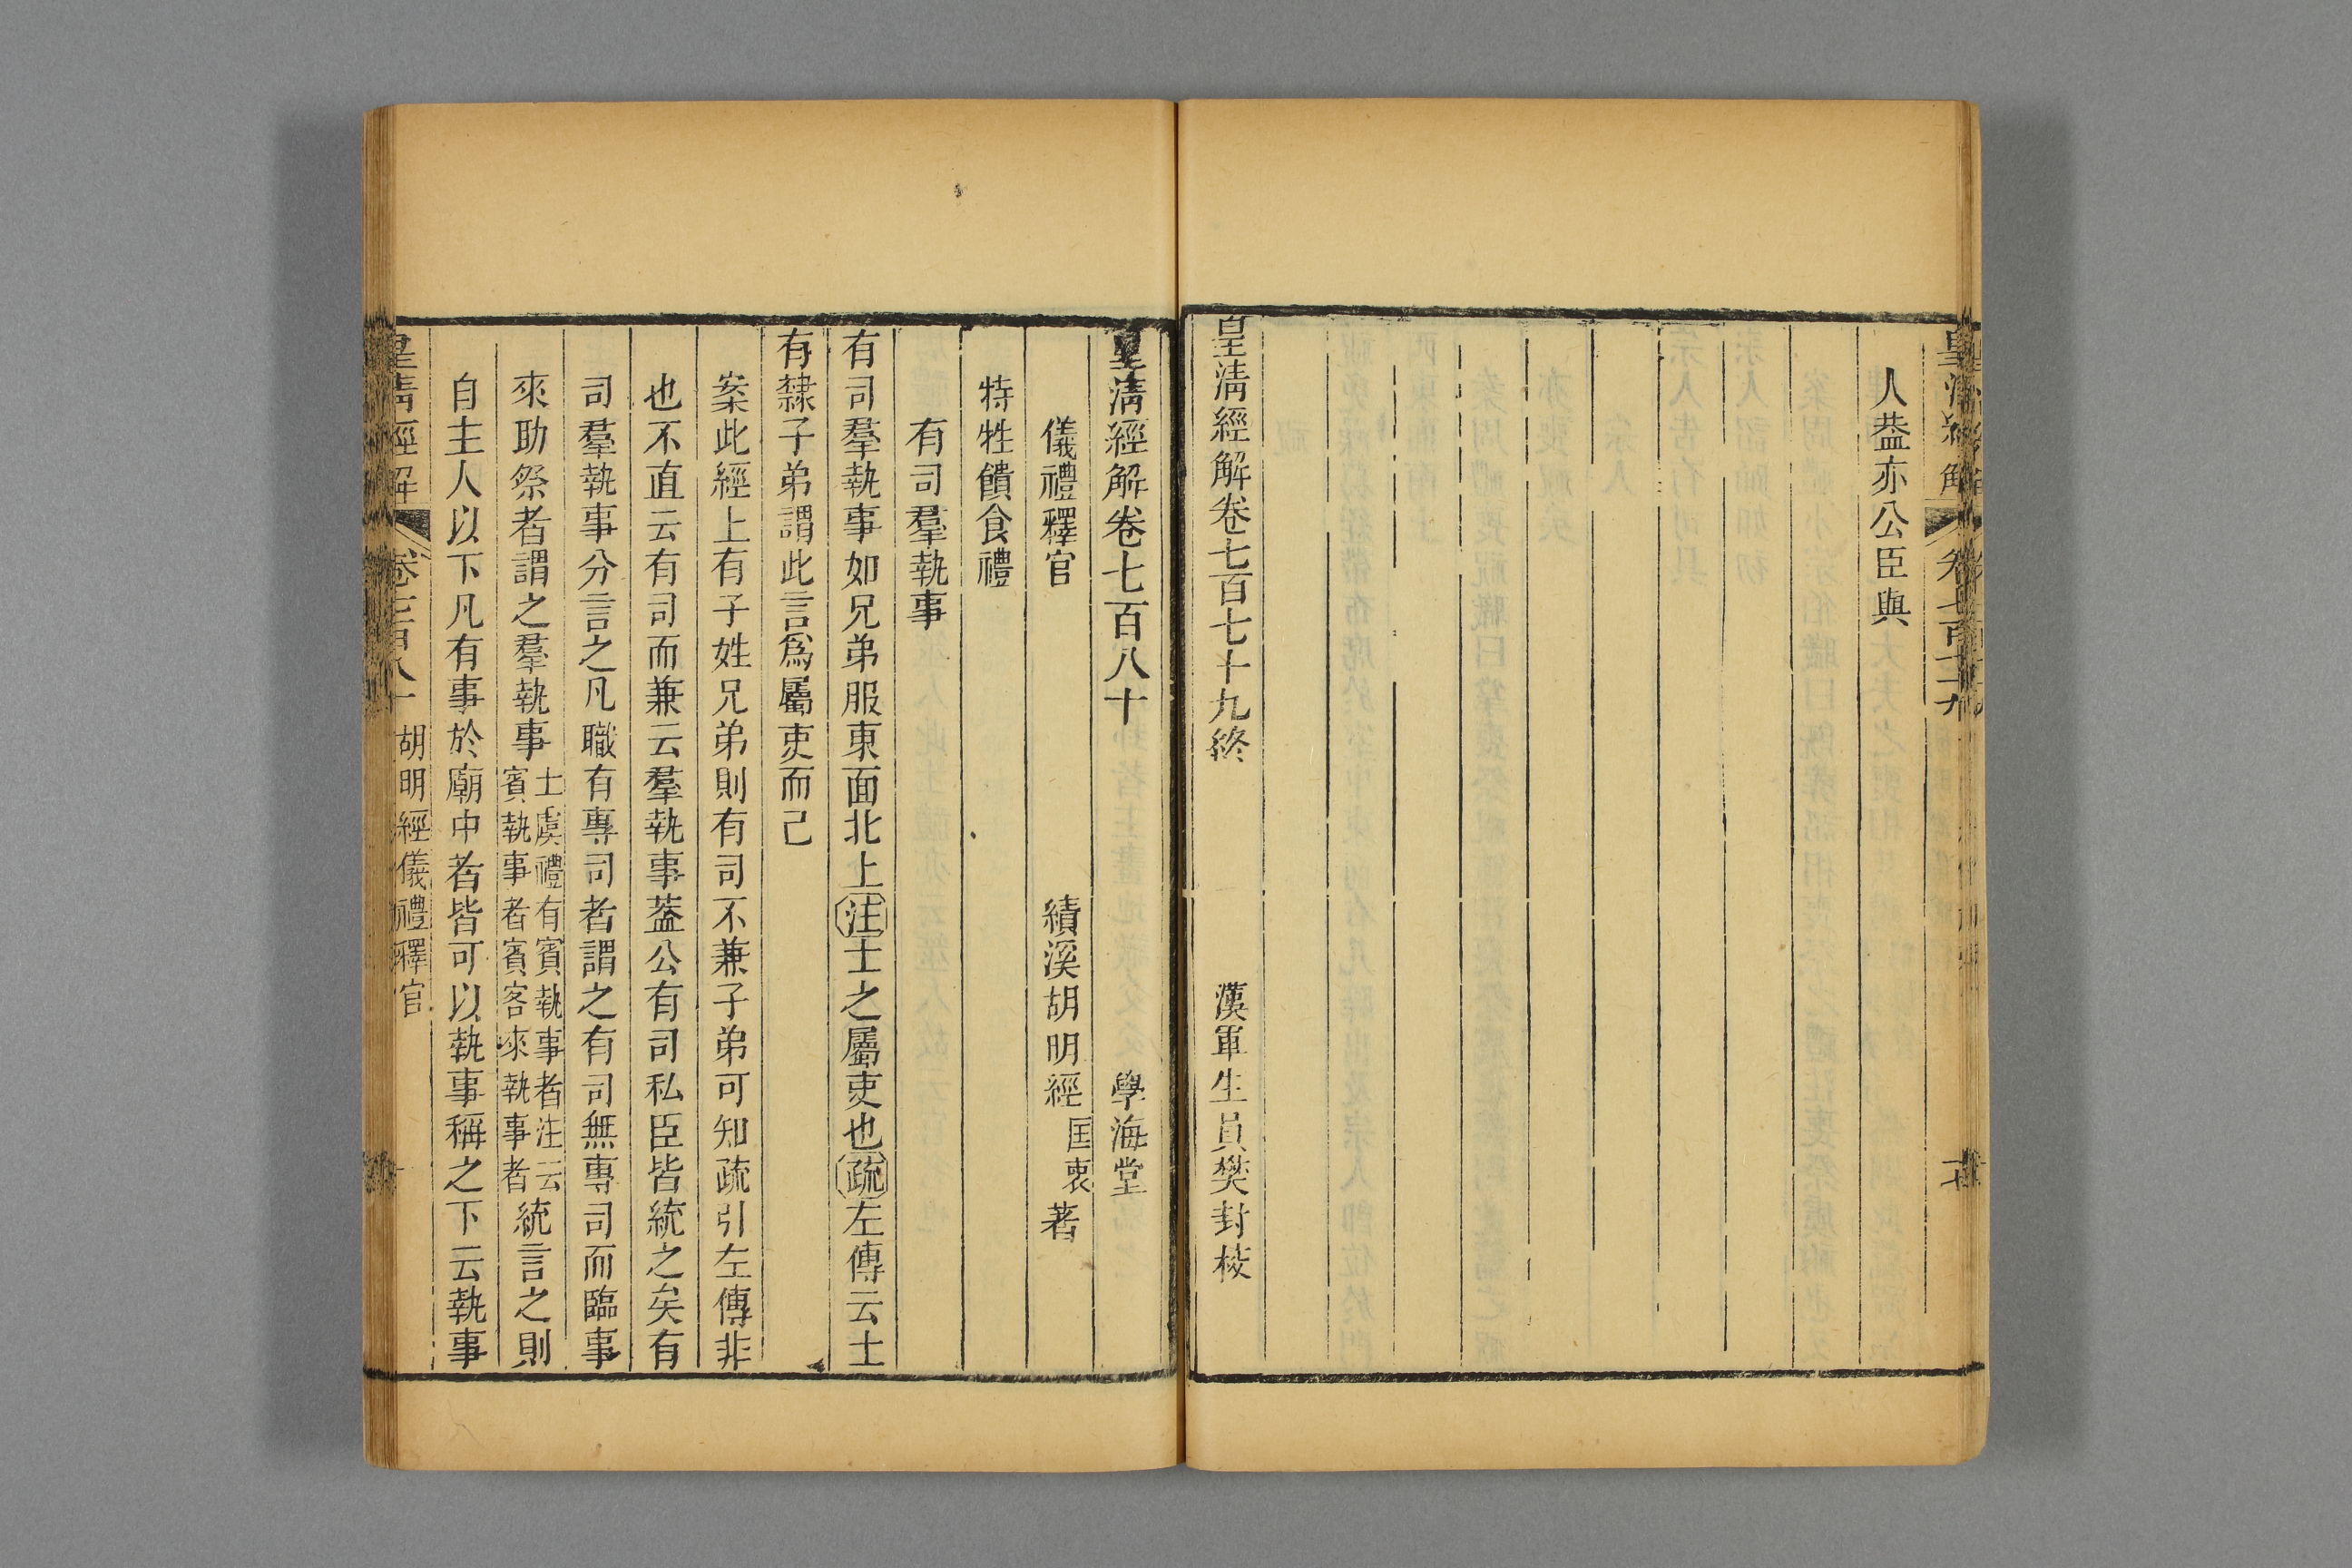 皇清經解 卷七百七十九
人葢亦公臣與
皇清經解卷七百七十九終 漢軍生員樊封校
皇清經解卷七百八十 學海堂
儀禮釋官 績溪胡明經匡衷著
特牲饋食禮
有司羣執事
有司羣執事如兄弟服東面北上注士之屬吏也疏左傳云士
有隸子弟謂此言爲屬吏而己
案此經上有子姓兄弟則有司不兼子弟可知疏引左傳非
也不直云有司而兼云羣執事葢公有司私臣皆統之矣有
司羣執事分言之凡職有專司者謂之有司無專司而臨事
來助祭者謂之羣執事士虞禮有賓執事者注云賓執事者賓客來執事者統言之則
自主人以下凡有事於廟中者皆可以執事稱之下云執事
皇清經解 卷七百八十 胡明經儀禮釋官